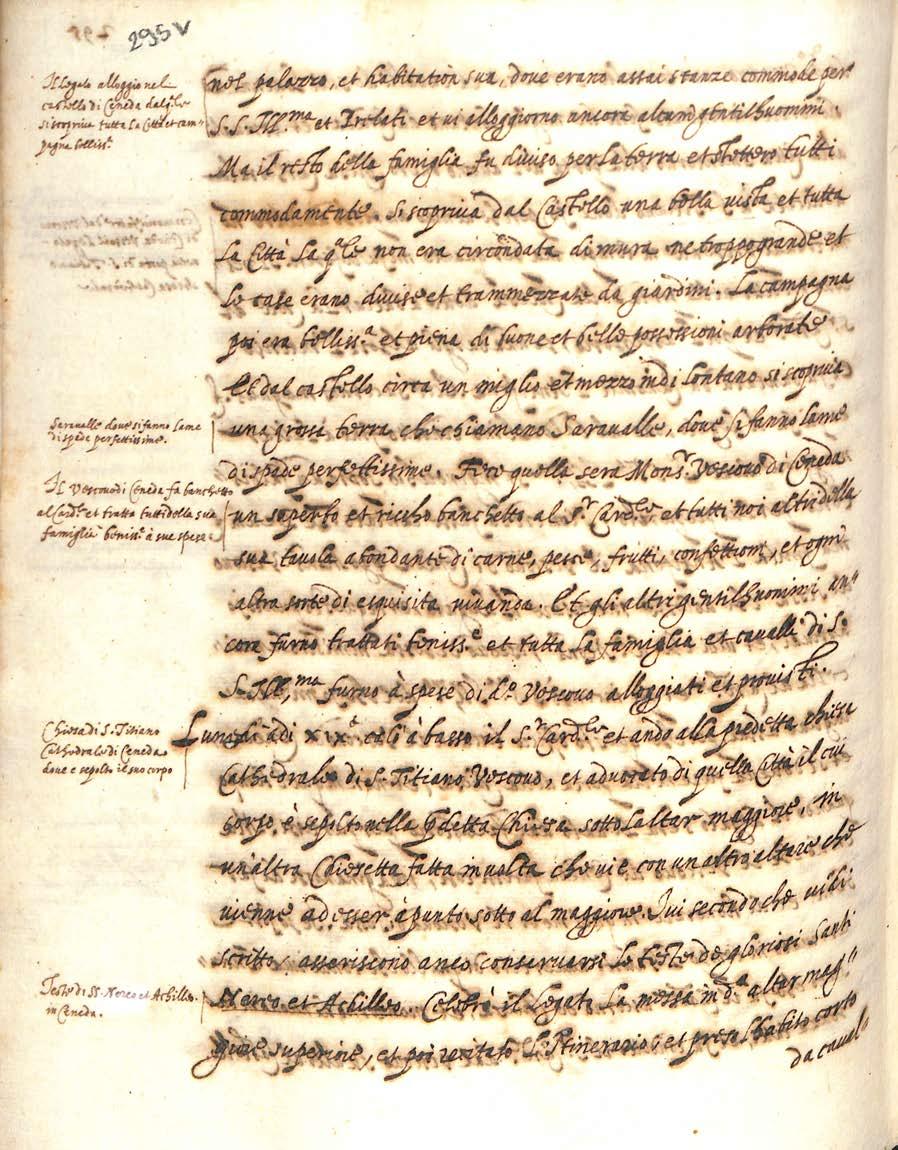 295v
Il Legato alloggio nel
castello di Ceneda dal q.le
si scopriva tutta la Città et cam-
pagna belliss.a
nel palazzo, et habitation sua, dove erano assai stanze commode per
S. S. Ill.ma et Prelati et vi alloggiorno ancora alcuni gentilhuomini.
Ma il resto della famiglia fu diviso per la terra et stettero tutti
commodamente. Si scopriva dal Castello una bella vista et tutta
la Città la q.le non era circondata di mura ne troppo grande et
le case erano divise et trammezzate da giardini. La campagna
poi era belliss.a et piena di buone et belle possessioni arborate
Et dal castello circa un miglio et mezzo indi lontano si scopriva
Saravalle dove si fanno lame
di spade perfettissime.
una grossa terra che chiamano Saravalle, dove si fanno lame
di spade perfettissime. Fece quella sera Mons.r Vescovo di Ceneda
Il Vescovo di Ceneda fa banchetto
al Card.le et tratta tutti della sua
famiglia beniss.o à sue spese
un superbo et riccho banchetto al S.r Card.le et tutti noi altri della
sua tavola abondante di carne, pesce, frutti, confettioni, et ogni
altra sorte di esquisita vivanda. Et gli altri gentilhuomini an-
cora furno trattati beniss.o et tutta la famiglia et cavalli di S.
S. Ill.ma furno à spese di d.o Vescovo alloggiati et provisti.
Chiesa di S. Titiano
Cathedrale di Ceneda
dove e sepolto il suo corpo
Lunedi adi xix.o calò à basso il S.r Card.le et andò alla predetta chiesa
Cathedrale di S. Titiano Vescovo, et advocato di quella Città il cui
corpo è sepolto nella p.detta Chiesa sotto laltar maggiore, in
un'altra Chiesetta fatta in volta che vi è con un altro altare che
vienne ad esser à punto sotto al maggiore. Ivi secondo che vidi
scritto, asseriscono anco conservarsi le teste de gloriosi Santi
Teste di SS. Nereo et Achilleo
in Ceneda.
Nereo et Achilleo. Celebrò il Legato la messa in d.o altar mag-
giore superiore, et poi recitato l'Itinerario, et preso l'habito corto
da caval-